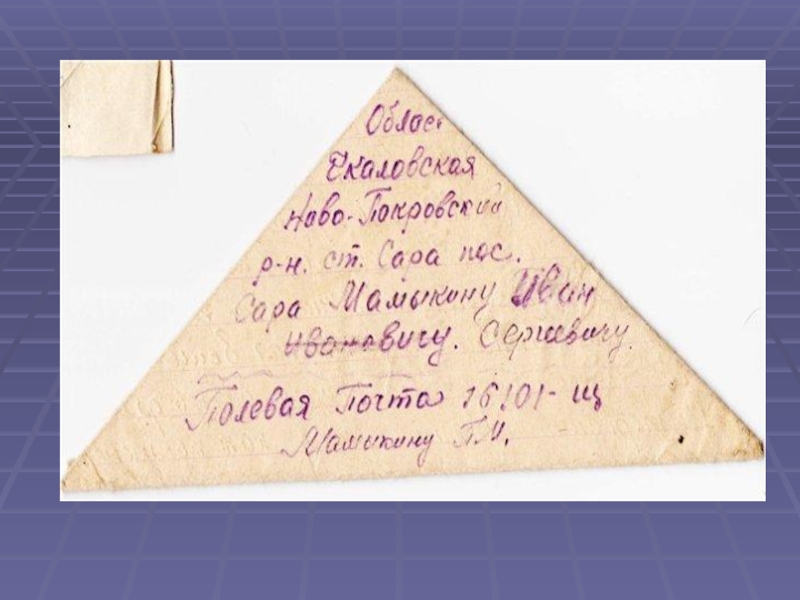 Облас
Чкаловская
Ново-Покровский
р-н. ст. Сара пос.
Сара Мамыкину Иван
Ивановичу. Сергеевичу.
Полевая Почта 16101-щ
Мамыкину П.И.